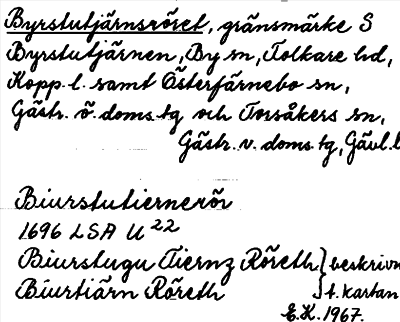 Byrstutjärnsröset, gränsmärke S
Byrstutjärnen, By sn, Folkare hd,
Kopp. l. samt Österfärnebo sn,
Gästr. ö. doms. tg och Torsåkers sn,
Gästr. v. doms. tg, Gävl. l
Biurstutiernerör
1696 LSA U 22
Biurstugu Tiernz Röreth } beskrivn
Biurtiärn Röreth } t. kartan
E.K. 1967.